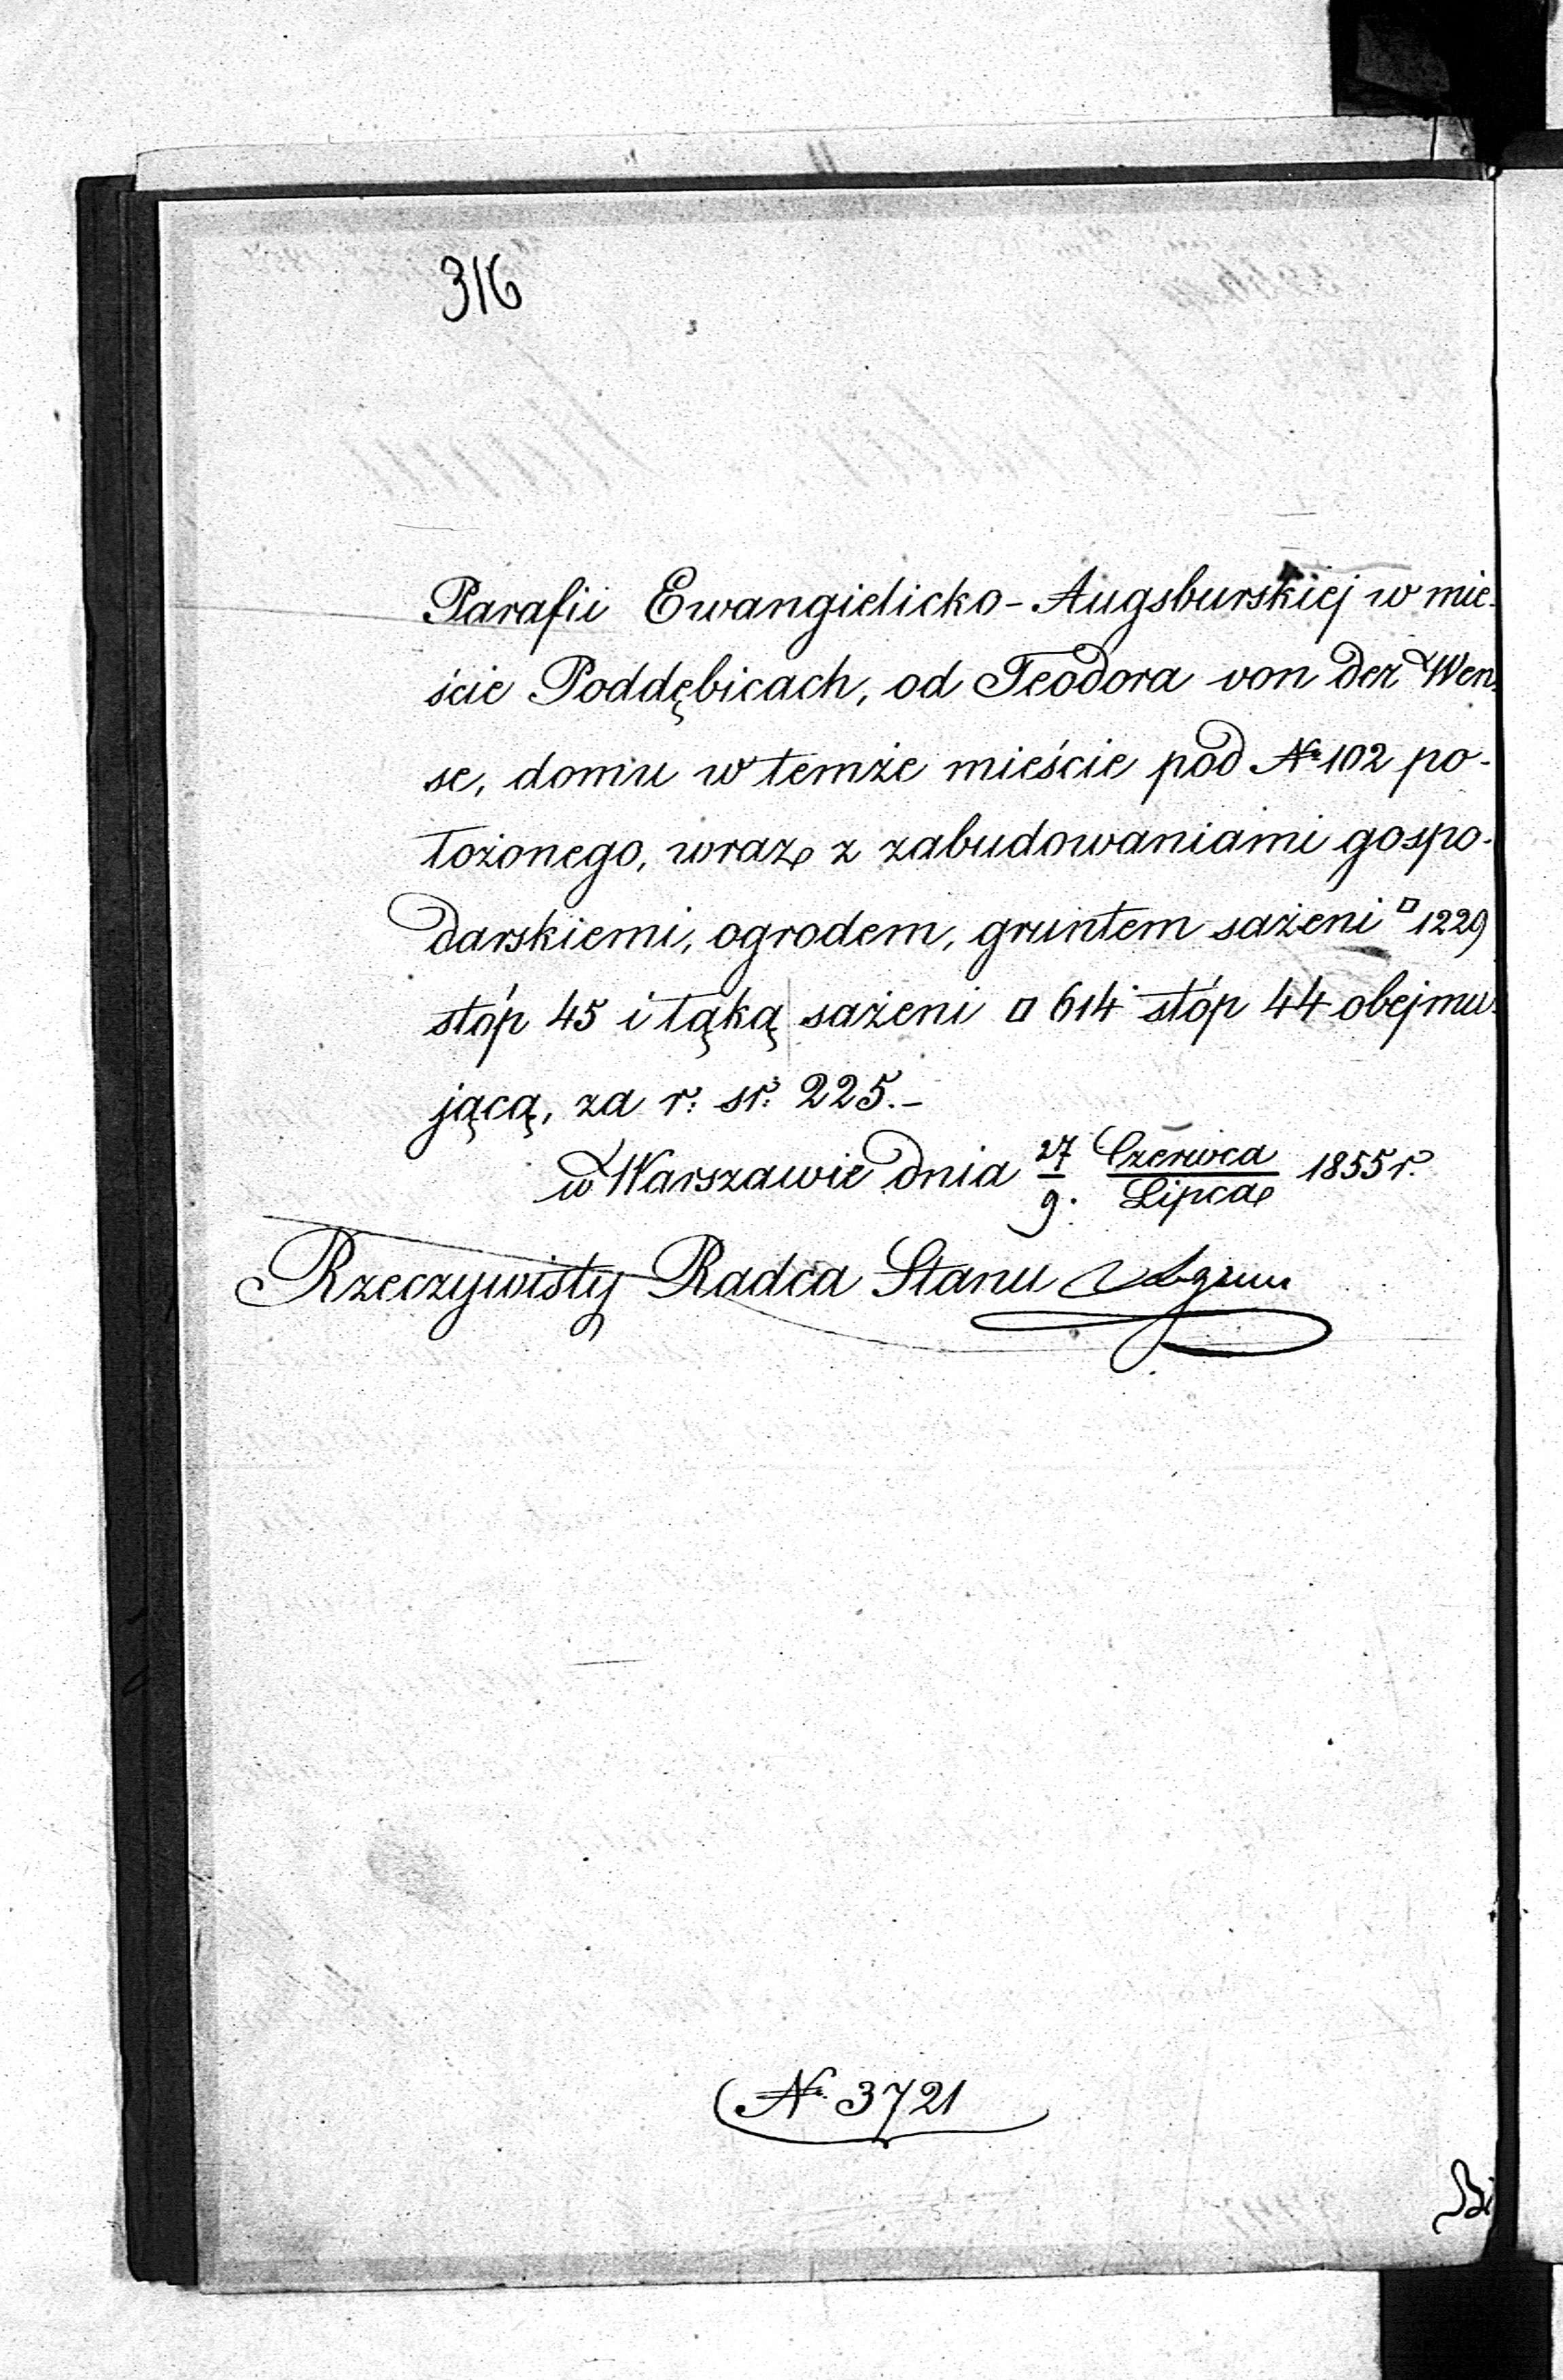 316
Parafii Ewangielicko-Augsburskiej w mie-
ście Poddębicach, od Teodora von der Wen-
se, domu w temże mieście pod № 102 po-
łożonego, wraz z zabudowaniami gospo-
darskiemi, ogrodem, gruntem sażeni □ 1229
stóp 45 i łąką sażeni □ 614 stóp 44 obejmu-
jącą, za r: sr: 225.-
w Warszawie dnia 27/9. Czerwca/Lipca 1855 r.
Rzeczywisty Radca Stanu
№ 3721